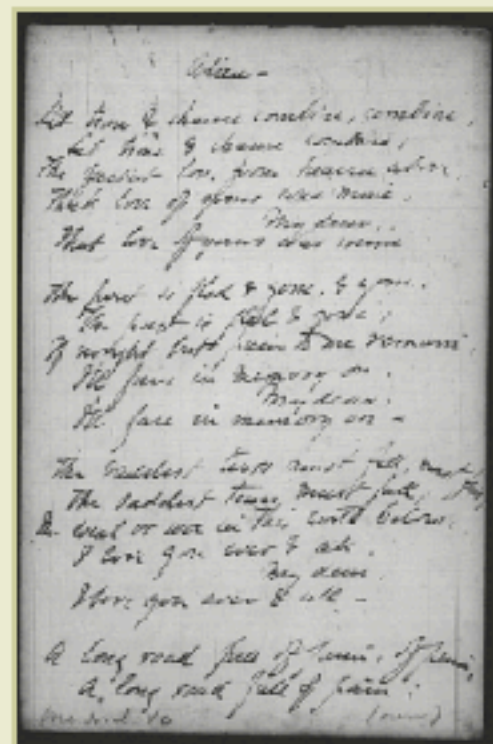 Adieu -
Let time & chance combine, combine,
Let time & chance combine,
The fairest love from heaven above,
That love of yours was mine,
My dear,
That love of yours was mine
The past is fled & gone, & gone,
The past is fled & gone;
If nought but pain to me remain,
I'll fare in memory on,
My dear,
I'll fare in memory on -
The saddest tears must fall, must fall,
The saddest tears must fall,
In weal or woe in this world below,
I love you ever & all,
My dear,
I love you ever & all -
A long road full of pain, of pain,
A long road full of pain;
(over)